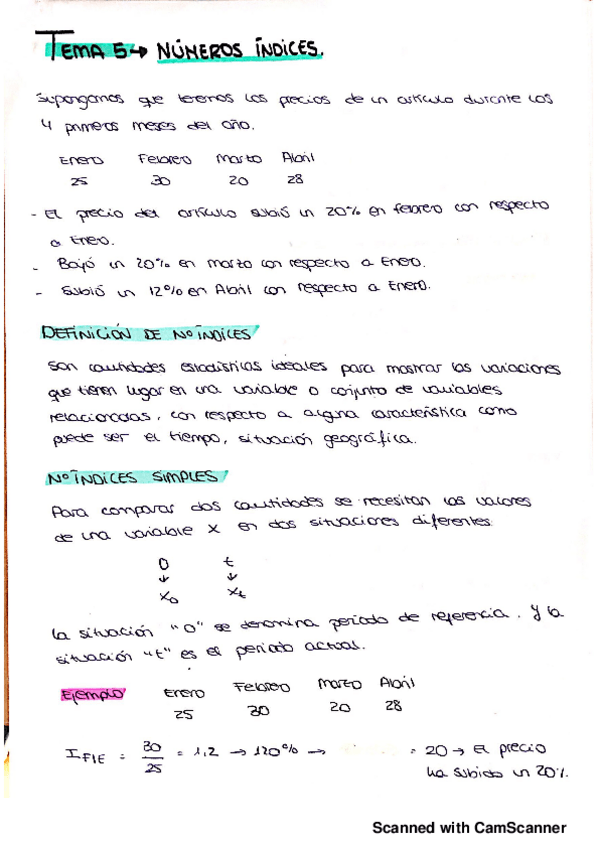 TEMA 5 → NÚMEROS ÍNDICES.
Supongamos que tenemos los precios de un artículo durante los
4 primeros meses del año.
Enero Febrero Marzo Abril
25 30 20 28
- El precio del artículo subió un 20% en febrero con respecto
a Enero.
- Bajó un 20% en marzo con respecto a Enero.
- Subió un 12% en Abril con respecto a Enero.
DEFINICIÓN DE Nº ÍNDICES
Son cantidades estadísticas ideales para mostrar las variaciones
que tienen lugar en una variable o conjunto de variables
relacionadas, con respecto a alguna característica como
puede ser el tiempo, situación geográfica.
Nº ÍNDICES SIMPLES
Para comparar dos cantidades se necesitan los valores
de una variable X en dos situaciones diferentes
0 t
↓ ↓
X₀ Xt
La situación "0" se denomina periodo de referencia. Y la
situación "t" es el periodo actual.
Ejemplo Enero Febrero Marzo Abril
25 30 20 28
I F/E = 30/25 = 1,2 → 120% → = 20 → El precio
ha subido un 20%.
Scanned with CamScanner